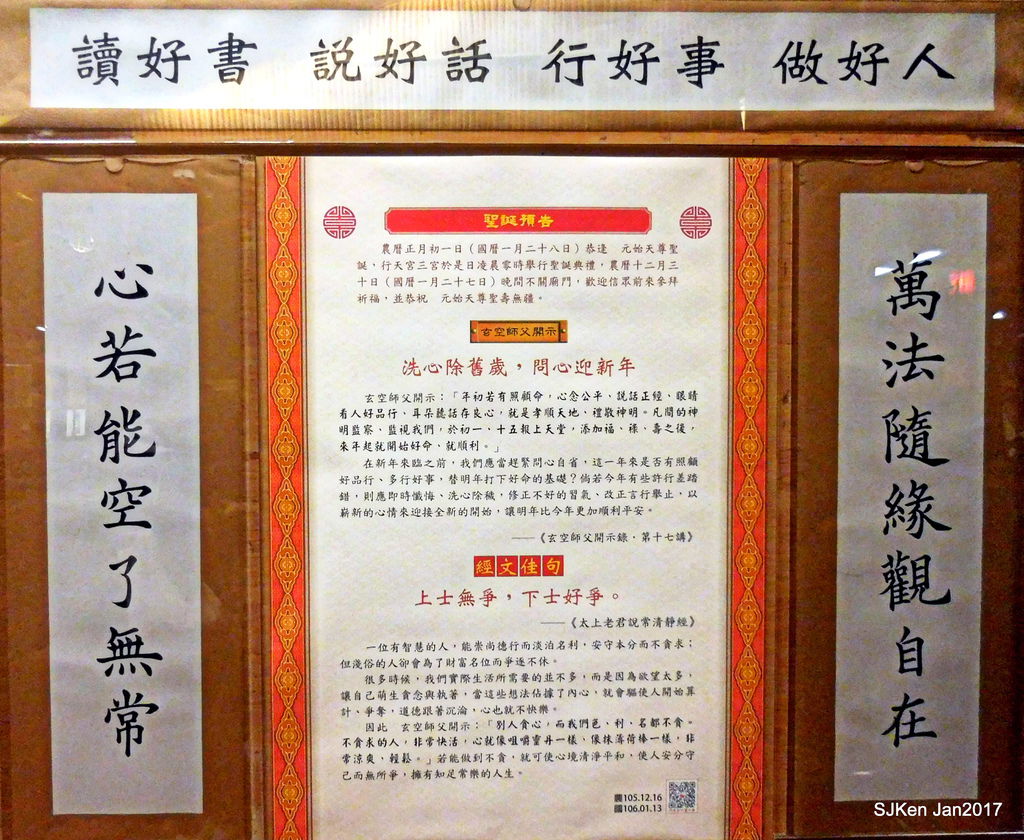 讀好書 說好話 行好事 做好人
萬法隨緣觀自在
心若能空了無常
聖誕預告
農曆正月初一日（國曆一月二十八日）恭逢　元始天尊聖
誕，行天宮三宮於是日凌晨零時舉行聖誕典禮，農曆十二月三
十日（國曆一月二十七日）晚間不關廟門，歡迎信眾前來參拜
祈福，並恭祝　元始天尊聖壽無疆。
玄空師父開示
洗心除舊歲，問心迎新年
玄空師父開示：「年初若有照顧命，心念公平、說話正經、眼睛
看人好品行、耳朵聽話存良心，就是孝順天地、禮敬神明。凡間的神
明監察、監視我們，於初一、十五報上天堂，添加福、祿、壽之後，
來年起就開始好命、就順利。」
在新年來臨之前，我們應當趕緊問心自省，這一年來是否有照顧
好品行、多行好事，替明年打下好命的基礎？倘若今年有些許行差踏
錯，則應即時懺悔、洗心除穢，修正不好的習氣、改正言行舉止，以
嶄新的心情來迎接全新的開始，讓明年比今年更加順利平安。
——《玄空師父開示錄．第十七講》
經文佳句
上士無爭，下士好爭。
——《太上老君說常清靜經》
一位有智慧的人，能崇尚德行而淡泊名利，安守本分而不貪求；
但淺俗的人卻會為了財富名位而爭逐不休。
很多時候，我們實際生活所需要的並不多，而是因為欲望太多，
讓自己萌生貪念與執著，當這些想法佔據了內心，就會驅使人開始算
計、爭奪，道德跟著沉淪，心也就不快樂。
因此　玄空師父開示：「別人貪心，而我們色、利、名都不貪。
不貪求的人，非常快活，心就像咀嚼靈丹一樣，像抹薄荷棒一樣，非
常涼爽、輕鬆。」若能做到不貪，就可使心境清淨平和，使人安分守
己而無所爭，擁有知足常樂的人生。
農105.12.16
國106.01.13
SJKen Jan2017